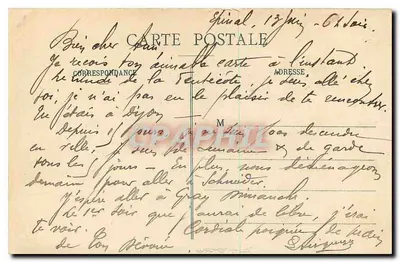 Epinal, 13 Juin - 6h Soir
Bien cher ami
CARTE POSTALE
Je reçois ton aimable carte à l'instant
CORRESPONDANCE
ADRESSE
Le lundi de la Pentecôte, je suis allé chez
toi, je n'ai pas eu le plaisir de te rencontrer.
Tu étais à Dijon
M
Depuis jours je pas descendre
en ville. Je suis de semaine & de garde
tous les jours - En plus nous déménageons
demain pour aller à Schneider.
J'espère aller à Gray Dimanche.
Le 1er soir que j'aurai de libre, j'irai
te voir. Cordiale poignée de main
de ton